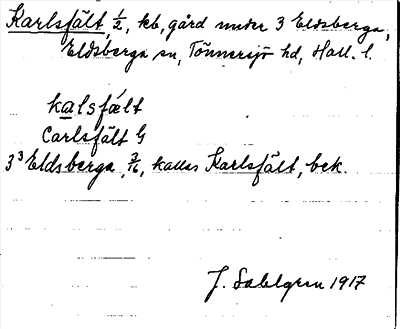 Karlsfält, 1/2, kb, gård under 3 Eldsberga,
Eldsberga sn, Tönnersjö hd, Hall. l.
kalsfält
Carlsfält G
3³ Eldsberga, 3/16, kallas Karlsfält, bek.
J. Sahlgren 1917